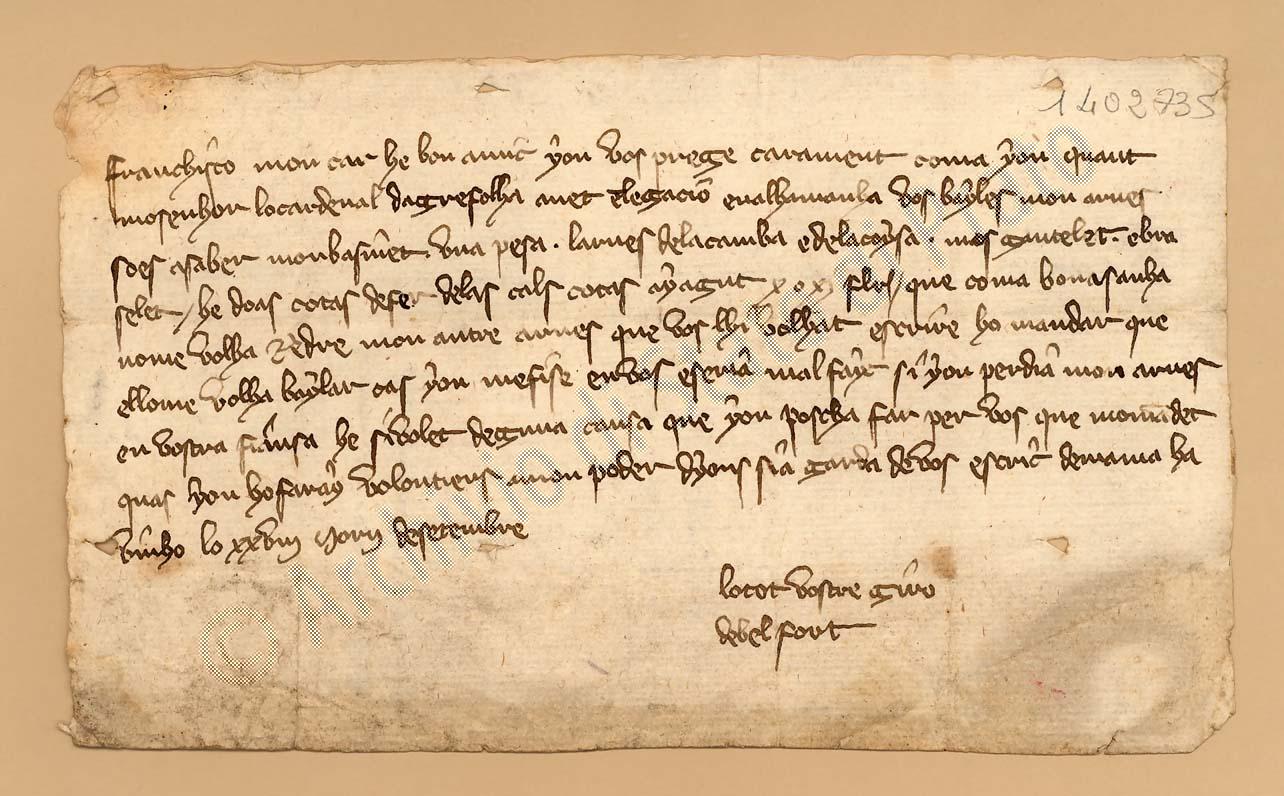 1402735
franchisco mon car he bon amic you vos prege carament coma you quant
mosenhor lo cardenal dagrefolha anet elegacio en alhamanha vos bayles mon arnes
so es asaber mon basinet. una pesa. larnes de la camba e de la coyssa. mos gantelet. e bra
selet / he doas cotas de fer de las cals cotas ay agut xxi flr / que coma bona sanha
no me volha redre mon autre arnes que vos lhi volhat escrire ho mandar que
el lo me volha baylar cas you me fise en vos e seria mal fayt si you perdia mon arnes
en vostra fiansa he si volet deguna causa que you poscha far per vos que mo mandet
quar you ho faray volontiers a mon poder dyous sia garda de vos escrit de ma ma ha
vinho lo xxviii jorn de setembre
lo tot vostre giro
de bel fort
© Archivio di Stato Prato